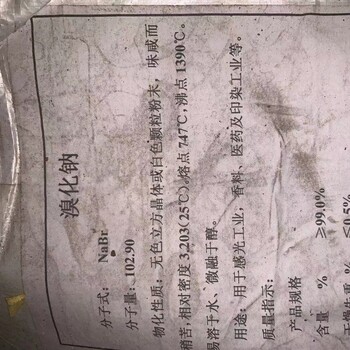 溴化钠
分子式：NaBr
分子量：102.90
物化性质：无色立方晶体或白色颗粒粉末，味咸而
稍苦，相对密度3,203(25℃)。熔点747℃，沸点1390℃。
易溶于水、微融于醇。
用途：用于感光工业，香料、医药及印染工业等。
质量指示：
产品规格
含量 % ≥99.0%
≤0.5%